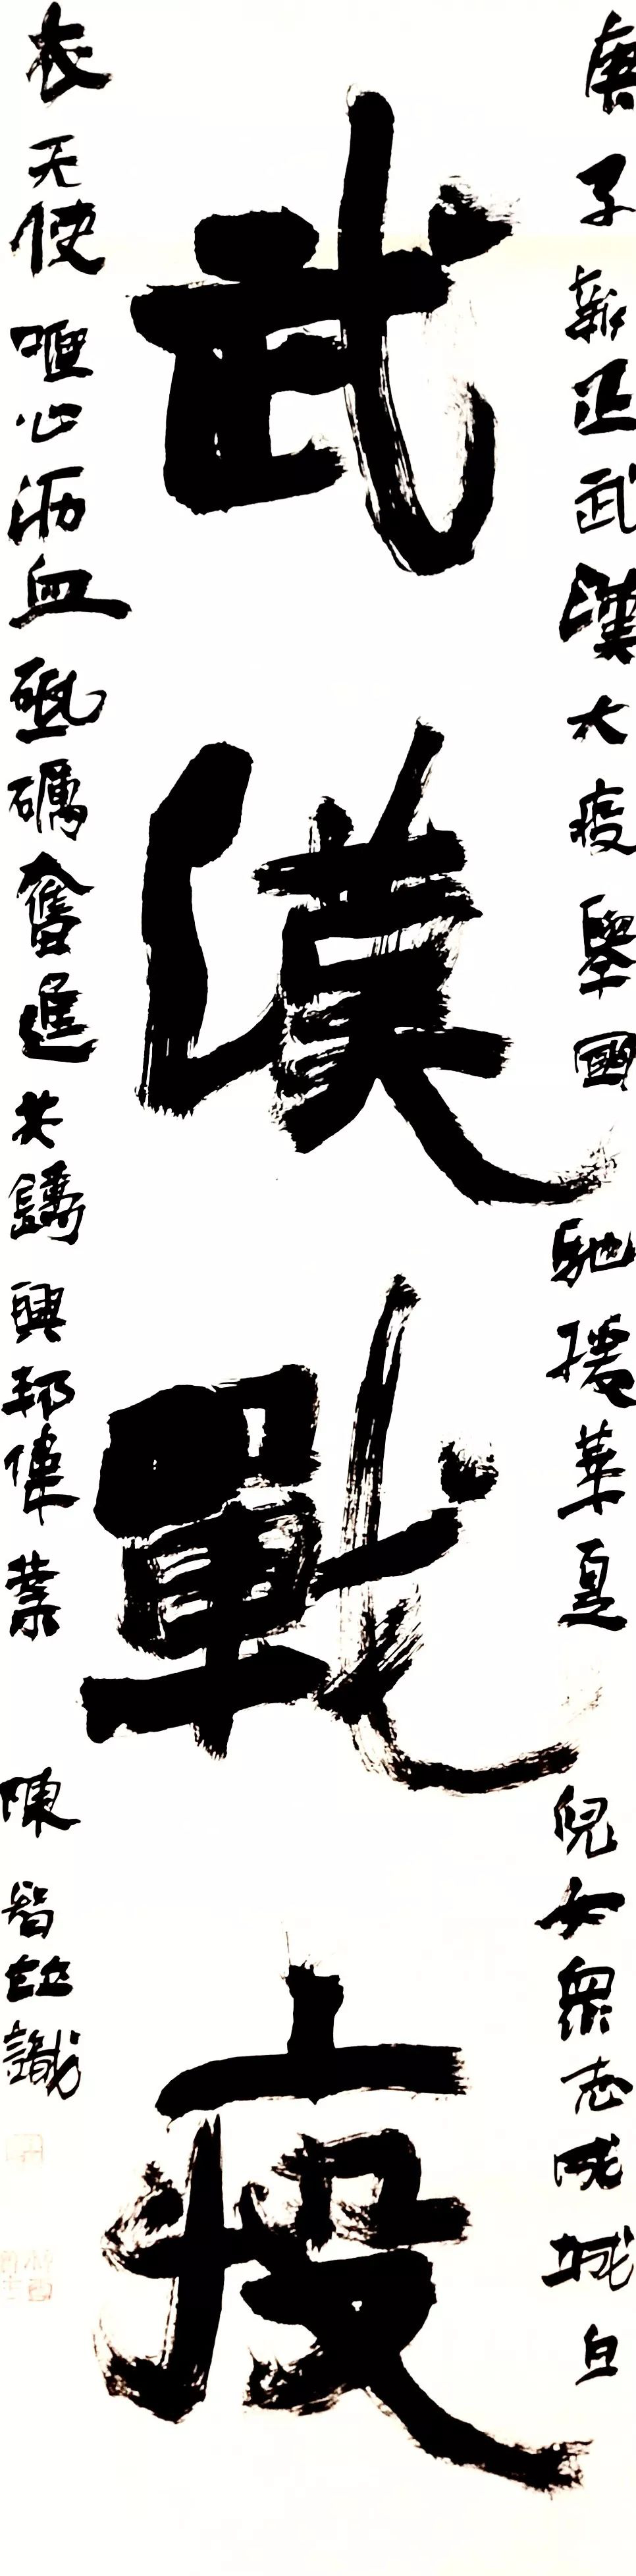 庚子新正武漢大疫舉國馳援華夏倪女眾志成城白
武漢戰疫
衣天使嘔心沥血砥礪奮進共鑄興邦偉業 陳智識